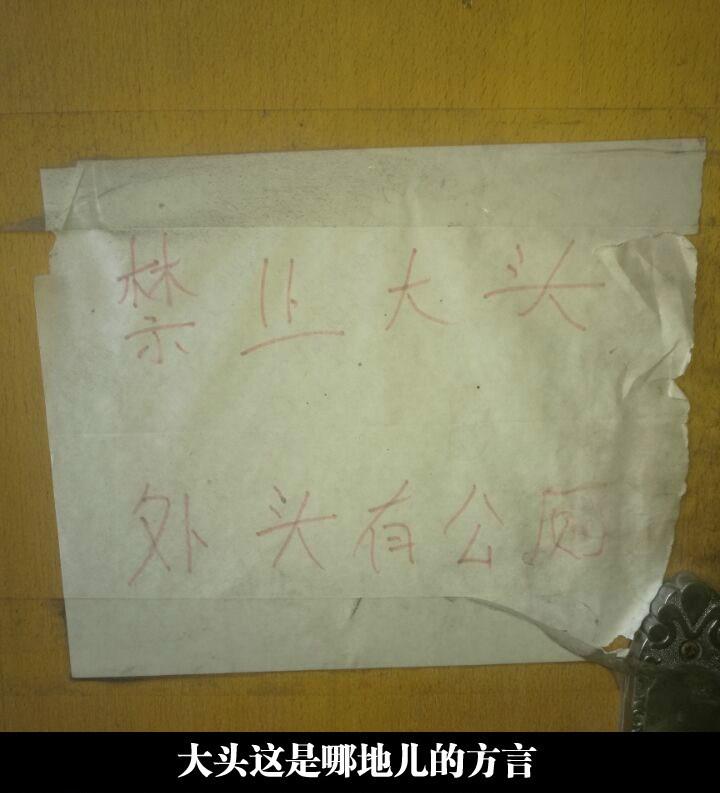 禁止大头
外头有公厕
大头这是哪地儿的方言